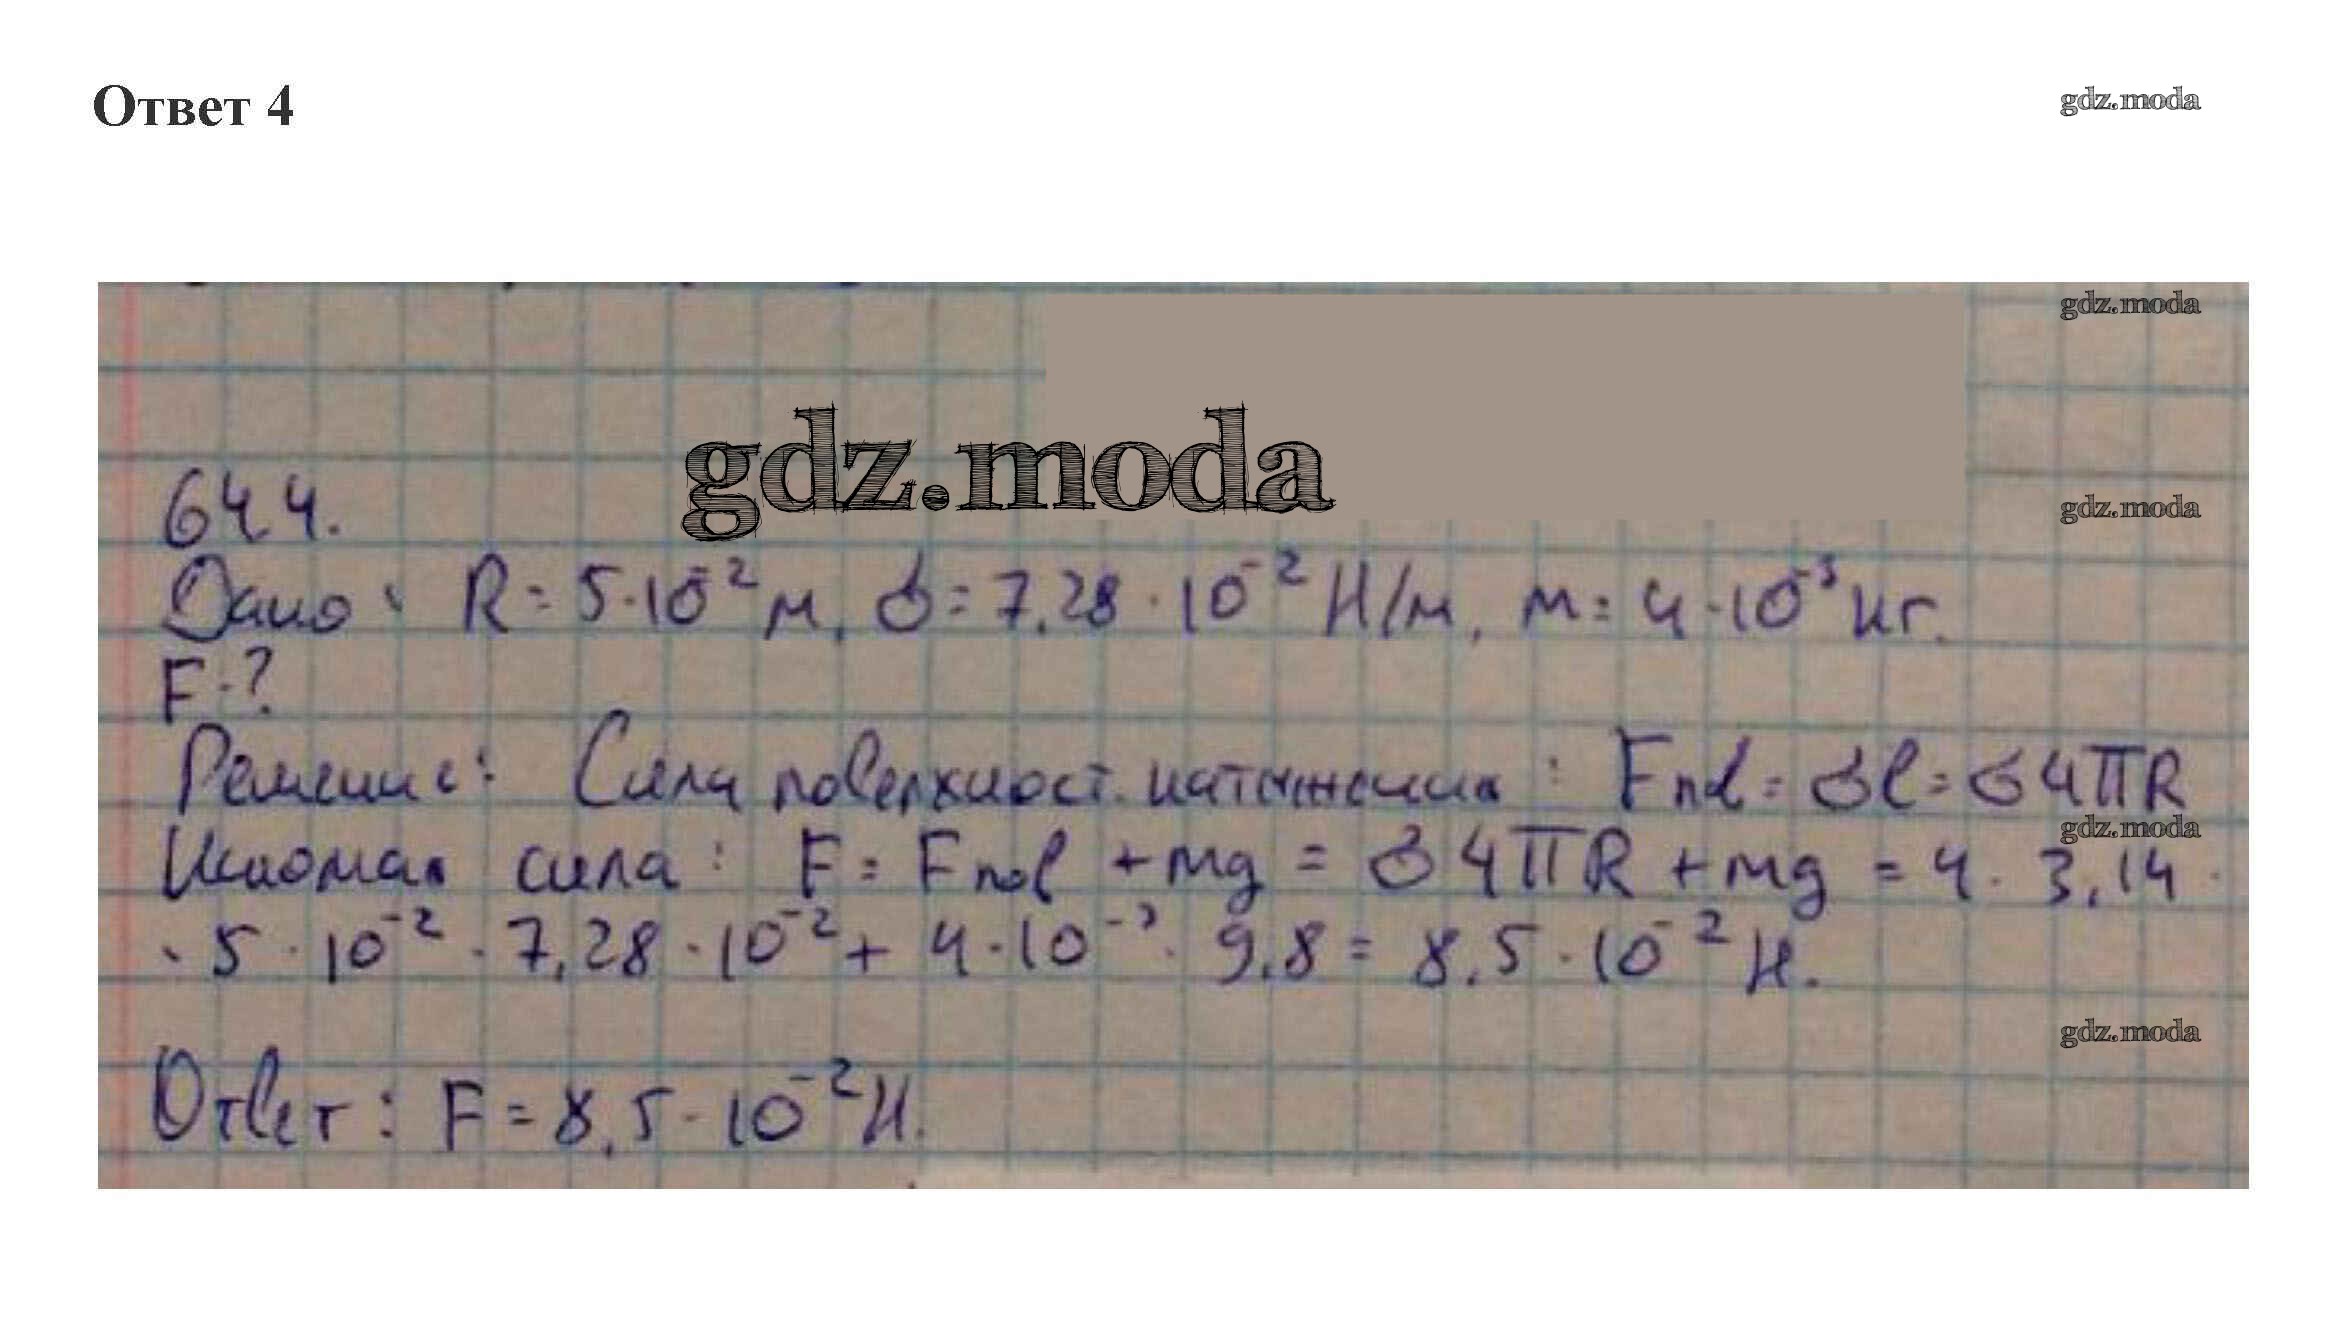 Ответ 4
gdz.moda
gdz.moda
gdz.moda
644.
gdz.moda
Дано: R = 5·10⁻² м, σ = 7,28 · 10⁻² Н/м, m = 4·10⁻³ кг.
F-?
Решение: Сила поверхност. натяжения: Fпов = σl = σ4πR
gdz.moda
Искомая сила: F = Fпов + mg = σ4πR + mg = 4 · 3,14 ·
· 5 · 10⁻² · 7,28 · 10⁻² + 4 · 10⁻³ · 9,8 = 8,5 · 10⁻² Н.
gdz.moda
Ответ: F = 8,5 · 10⁻² Н.